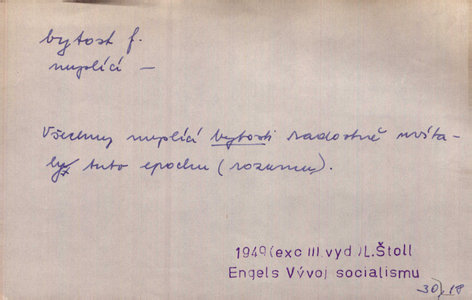 bytost f.
myslící —
Všechny myslící bytosti radostně uvíta-
ly tuto epochu (rozumu).
1949 (exc III. vyd) L. Štoll
Engels Vývoj socialismu
30/18